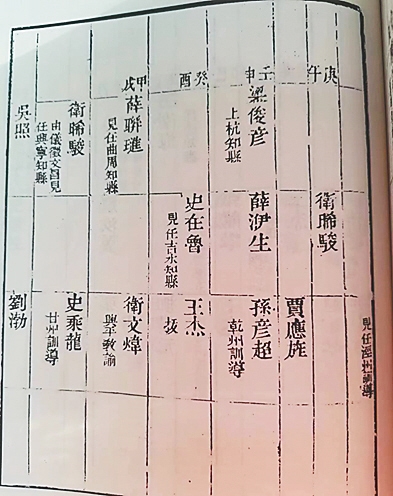 見任涇州訓導
庚午
衛晞駿
賈應旌
壬申
梁俊彥
上杭知縣
薛洢生
孫彥超
乾州訓導
癸酉
史在魯
見任吉水知縣
王杰
拔
甲戌
薛聯
見任曲周知縣
衛文煒
興平教諭
衛晞駿
由儀徵文昌見
任興寧知縣
史乘龍
甘州訓導
吳照
劉渤